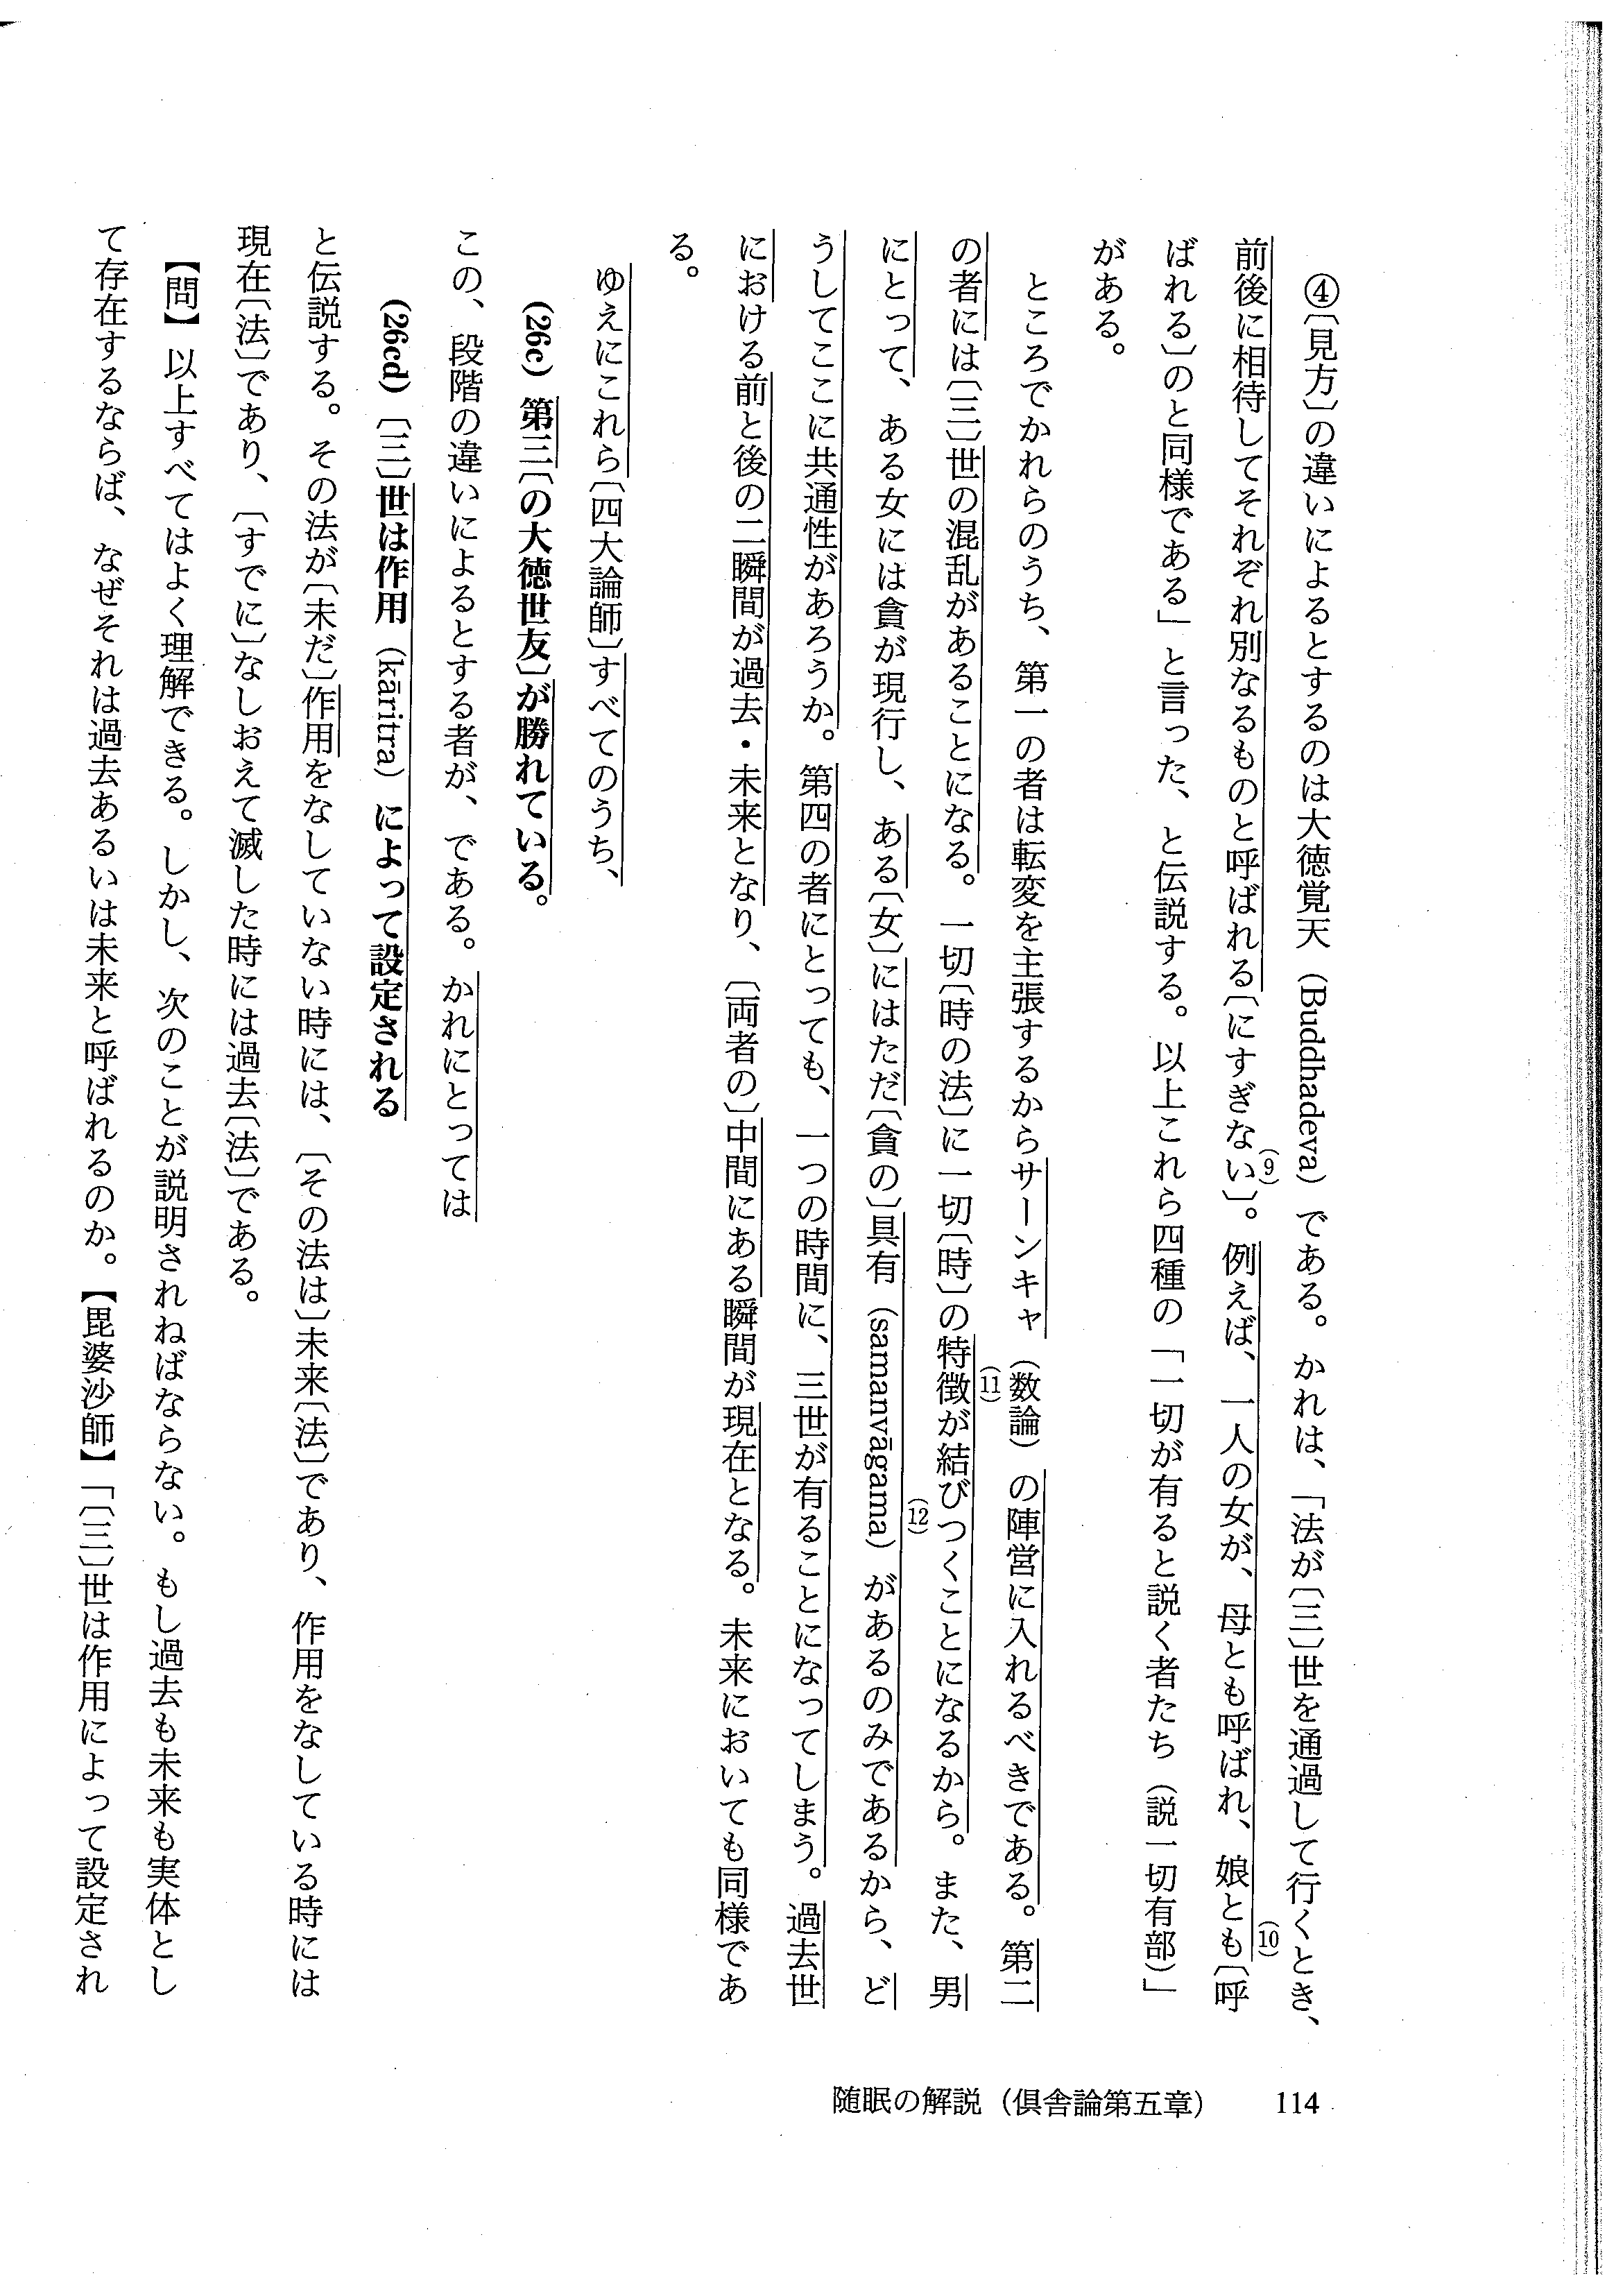 ④〔見方〕の違いによるとするのは大徳覚天（Buddhadeva）である。かれは、「法が〔三〕世を通過して行くとき、
前後に相待してそれぞれ別なるものと呼ばれる〔にすぎない〕(9)。例えば、一人の女が、母とも呼ばれ、娘とも(10)〔呼
ばれる〕のと同様である」と言った、と伝説する。以上これら四種の「一切が有ると説く者たち（説一切有部）」
がある。
ところでかれらのうち、第一の者は転変を主張するからサーンキャ（数論）の陣営に入れるべきである。第二
の者には〔三〕世の混乱があることになる。一切〔時の法〕に一切〔時〕の特徴(11)が結びつくことになるから。また、男
にとって、ある女には貪が現行し、ある〔女〕にはただ〔貪の〕具有（samanvāgama）(12)があるのみであるから、ど
うしてここに共通性があろうか。第四の者にとっても、一つの時間に、三世が有ることになってしまう。過去世
における前と後の二瞬間が過去・未来となり、〔両者の〕中間にある瞬間が現在となる。未来においても同様であ
る。
ゆえにこれら〔四大論師〕すべてのうち、
（26c）第三〔の大徳世友〕が勝れている。
この、段階の違いによるとする者が、である。かれにとっては
（26cd）〔三〕世は作用（kāritra）によって設定される
と伝説する。その法が〔未だ〕作用をなしていない時には、〔その法は〕未来〔法〕であり、作用をなしている時には
現在〔法〕であり、〔すでに〕なしおえて滅した時には過去〔法〕である。
【問】以上すべてはよく理解できる。しかし、次のことが説明されねばならない。もし過去も未来も実体とし
て存在するならば、なぜそれは過去あるいは未来と呼ばれるのか。【毘婆沙師】「〔三〕世は作用によって設定され
随眠の解説（倶舎論第五章） 114